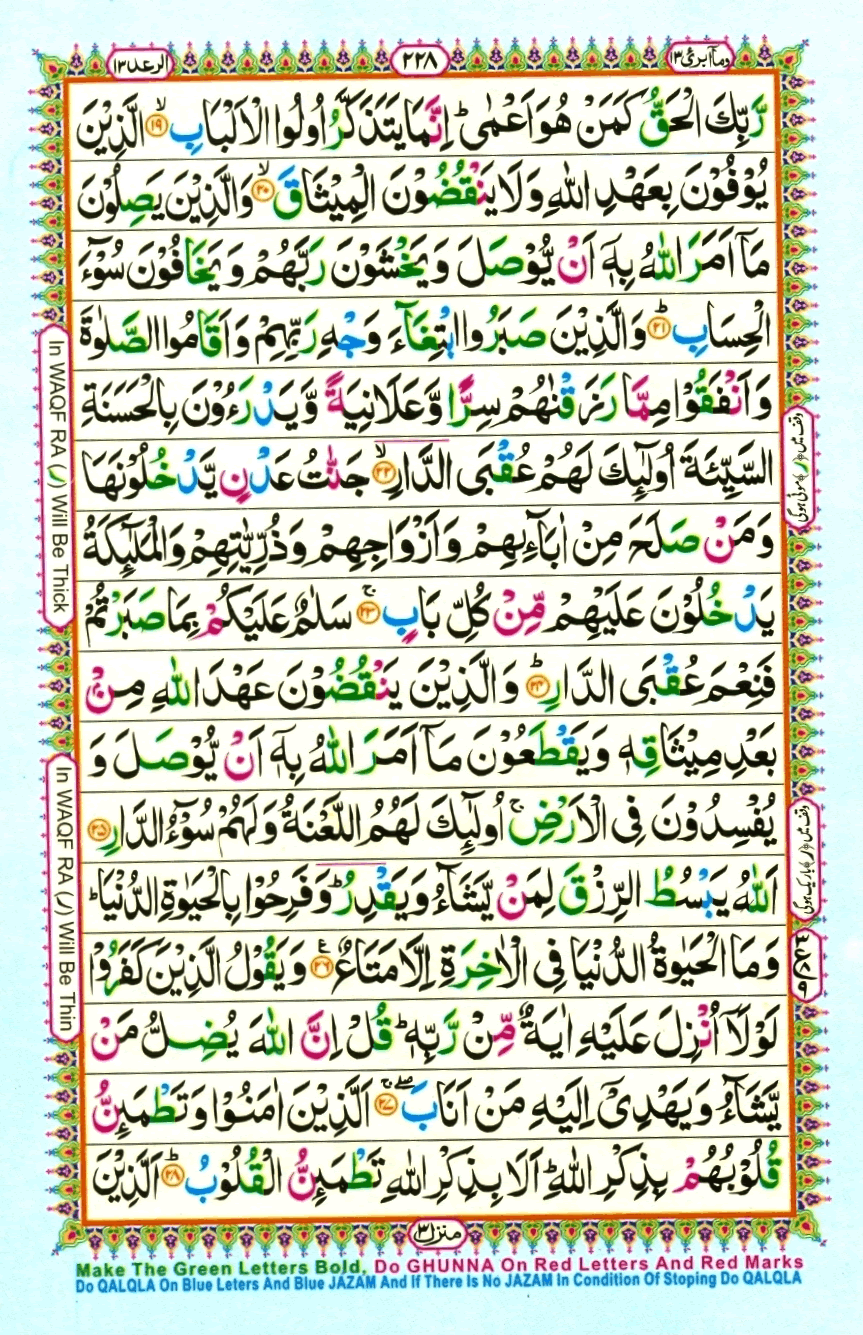 الرعد ١٣
٢٢٨
وما ابرئ ١٣
رَّبِّكَ الْحَقُّ كَمَنْ هُوَ اَعْمٰى ؕ اِنَّمَا يَتَذَكَّرُ اُولُوا الْاَلْبَابِ ۙ‏﴿۱۹﴾ الَّذِيْنَ
يُوْفُوْنَ بِعَهْدِ اللّٰهِ وَلَا يَنْقُضُوْنَ الْمِيْثَاقَ ۙ‏﴿۲۰﴾ وَالَّذِيْنَ يَصِلُوْنَ
مَاۤ اَمَرَ اللّٰهُ بِهٖۤ اَنْ يُّوْصَلَ وَيَخْشَوْنَ رَبَّهُمْ وَيَخَافُوْنَ سُوْٓءَ
الْحِسَابِ ؕ‏﴿۲۱﴾ وَالَّذِيْنَ صَبَرُوا ابْتِغَآءَ وَجْهِ رَبِّهِمْ وَاَقَامُوا الصَّلٰوةَ
وَاَنْفَقُوْا مِمَّا رَزَقْنٰهُمْ سِرًّا وَّعَلَانِيَةً وَّيَدْرَءُوْنَ بِالْحَسَنَةِ
السَّيِّئَةَ اُولٰٓئِكَ لَهُمْ عُقْبَى الدَّارِ ۙ‏﴿۲۲﴾ جَنّٰتُ عَدْنٍ يَّدْخُلُوْنَهَا
وَمَنْ صَلَحَ مِنْ اٰبَآئِهِمْ وَاَزْوَاجِهِمْ وَذُرِّيّٰتِهِمْ وَالْمَلٰٓئِكَةُ
يَدْخُلُوْنَ عَلَيْهِمْ مِّنْ كُلِّ بَابٍ ۚ‏﴿۲۳﴾ سَلٰمٌ عَلَيْكُمْ بِمَا صَبَرْتُمْ
فَنِعْمَ عُقْبَى الدَّارِ ؕ‏﴿۲۴﴾ وَالَّذِيْنَ يَنْقُضُوْنَ عَهْدَ اللّٰهِ مِنْۢ
بَعْدِ مِيْثَاقِهٖ وَيَقْطَعُوْنَ مَاۤ اَمَرَ اللّٰهُ بِهٖۤ اَنْ يُّوْصَلَ وَ
يُفْسِدُوْنَ فِى الْاَرْضِ ۙ اُولٰٓئِكَ لَهُمُ اللَّعْنَةُ وَلَهُمْ سُوْٓءُ الدَّارِ ﴿۲۵﴾
اَللّٰهُ يَبْسُطُ الرِّزْقَ لِمَنْ يَّشَآءُ وَيَقْدِرُ ؕ وَفَرِحُوْا بِالْحَيٰوةِ الدُّنْيَا ؕ
وَمَا الْحَيٰوةُ الدُّنْيَا فِى الْاٰخِرَةِ اِلَّا مَتَاعٌ ﴿۲۶﴾ وَيَقُوْلُ الَّذِيْنَ كَفَرُوْا
لَوْلَاۤ اُنْزِلَ عَلَيْهِ اٰيَةٌ مِّنْ رَّبِّهٖ ؕ قُلْ اِنَّ اللّٰهَ يُضِلُّ مَنْ
يَّشَآءُ وَيَهْدِىْۤ اِلَيْهِ مَنْ اَنَابَ ۖۚ‏﴿۲۷﴾ اَلَّذِيْنَ اٰمَنُوْا وَتَطْمَئِنُّ
قُلُوْبُهُمْ بِذِكْرِ اللّٰهِ ؕ اَلَا بِذِكْرِ اللّٰهِ تَطْمَئِنُّ الْقُلُوْبُ ؕ‏﴿۲۸﴾ اَلَّذِيْنَ
منزل ٣
In WAQF RA (ر) Will Be Thick
In WAQF RA (ر) Will Be Thin
وقف میں (ر) موٹی ہوگی
وقف میں (ر) باریک ہوگی
Make The Green Letters Bold, Do GHUNNA On Red Letters And Red Marks
Do QALQLA On Blue Leters And Blue JAZAM And If There Is No JAZAM In Condition Of Stoping Do QALQLA